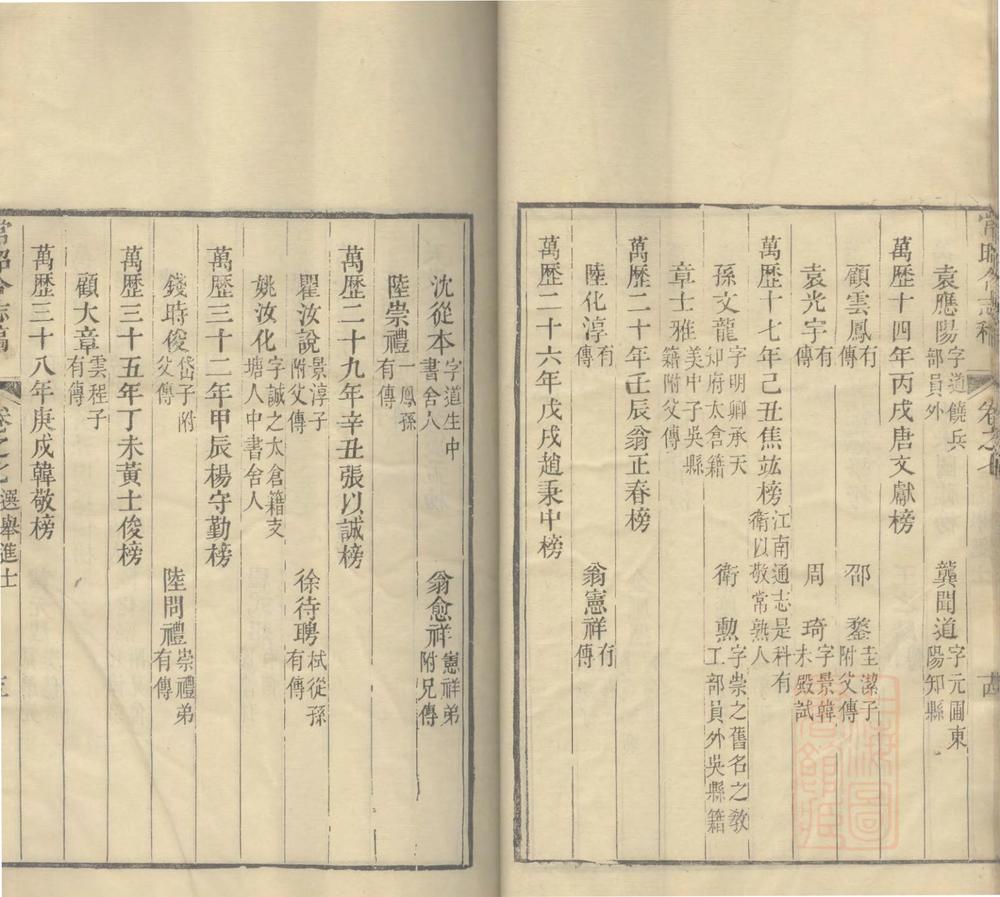 常昭合志稿 卷之七
袁應陽 字道饒兵部員外 龔聞道 字元圃東陽知縣
萬歷十四年丙戌唐文獻榜
顧雲鳳 有傳 邵鏊 圭潔子附父傳
袁光宇 有傳 周琦 字景韓未殿試
萬歷十七年己丑焦竑榜 江南通志是科有衛以敬常熟人
孫文龍 字明卿承天知府太倉籍 衛勲 字崇之舊名之敎工部員外吳縣籍
章士雅 美中子吳縣籍附父傳
萬歷二十年壬辰翁正春榜
陸化淳 有傳 翁憲祥 有傳
萬歷二十六年戊戌趙秉中榜
沈從本 字道生中書舍人 翁愈祥 憲祥弟附兄傳
陸崇禮 一鳳孫有傳
萬歷二十九年辛丑張以誠榜
瞿汝說 景淳子附父傳 徐待聘 栻從孫有傳
姚汝化 字誠之太倉籍支塘人中書舍人
萬歷三十二年甲辰楊守勤榜
錢時俊 岱子附父傳 陸問禮 崇禮弟有傳
萬歷三十五年丁未黃士俊榜
顧大章 雲程子有傳
萬歷三十八年庚戌韓敬榜
常昭合志稿 卷之七 選舉進士